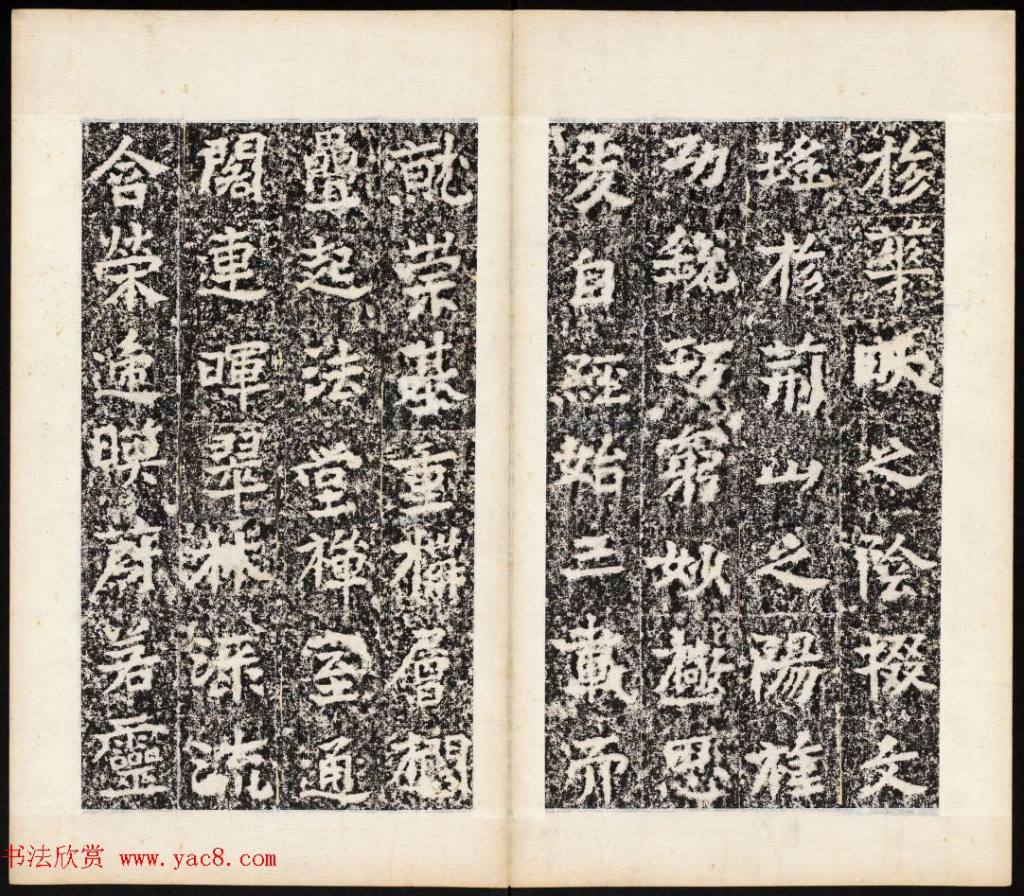 於華畎之陰掇文
瑤於荊山之陽雄
功銳巧窮妙極思
爰自經始三載而
就崇基重構層櫩
疊起法堂禪室通
閣連暉翠林淥流
含榮遞暎蔚若靈
书法欣赏 www.yac8.com